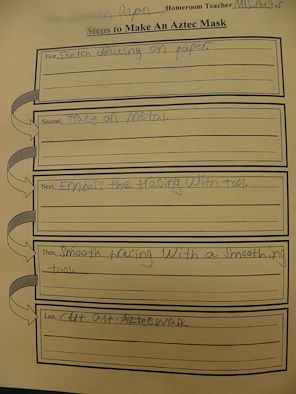 Ryan Homeroom Teacher
Steps to Make An Aztec Mask
First, Sketch drawing on paper.
Second, Trace on Metal.
Next, Emboss the tracing With tool.
Then, Smooth tracing With a Smoothing
tool.
Last, Cut out Aztec mask